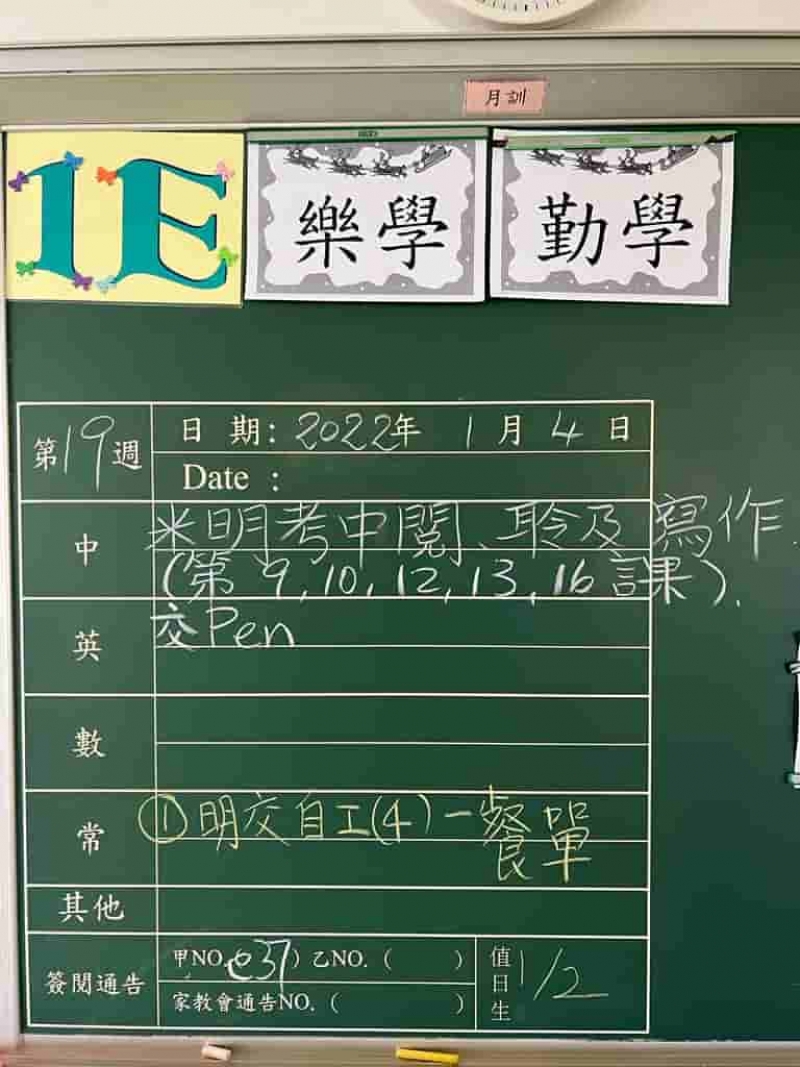 月訓
1E 樂學 勤學
第19週 日 期: 2022年 1月 4日
Date :
中 ※明考中閱、聆及寫作
(第 9, 10, 12, 13, 16 課).
英 交Pen
數
常 ①明交自工(4)一餐單
其他
簽閱通告 甲NO.(e37) 乙NO. ( ) 值日生 1/2
家教會通告NO. ( )